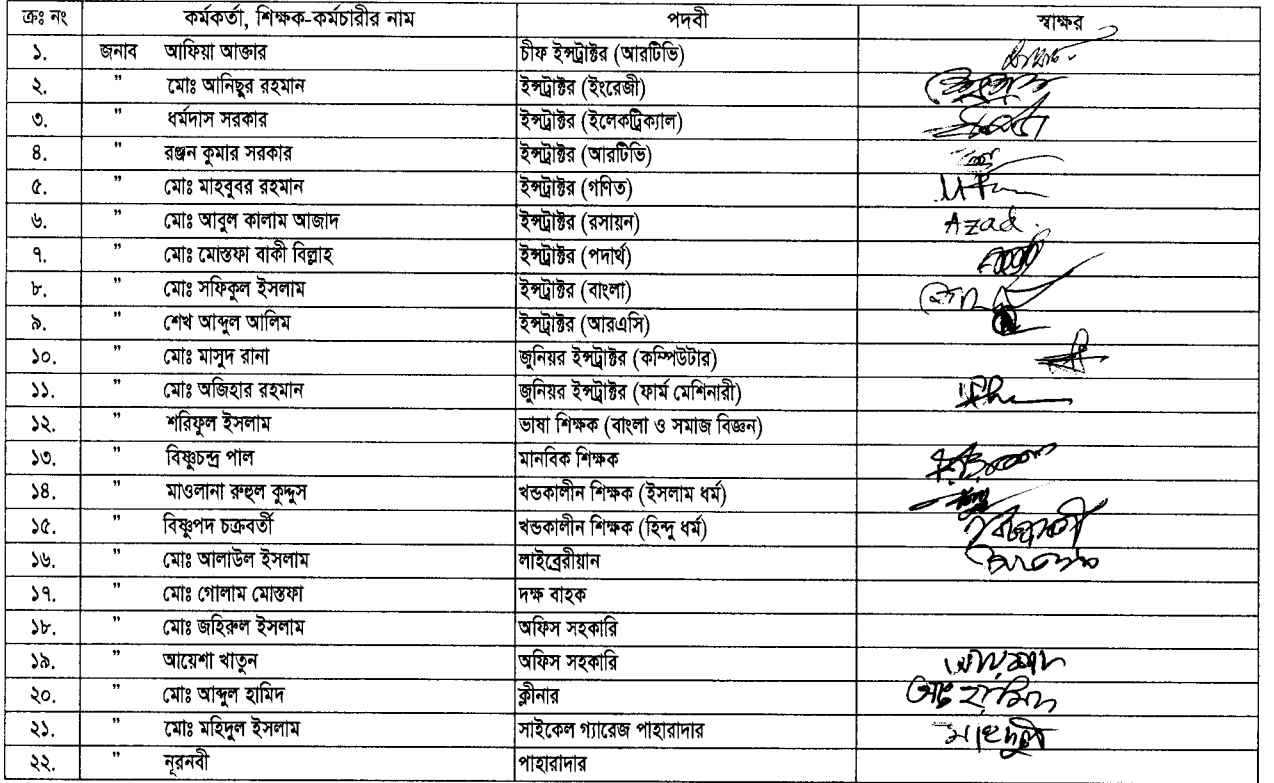 ক্রঃ নং কর্মকর্তা, শিক্ষক-কর্মচারীর নাম পদবী স্বাক্ষর
১. জনাব আফিয়া আক্তার চীফ ইন্সট্রাক্টর (আরটিভি)
২. " মোঃ আনিছুর রহমান ইন্সট্রাক্টর (ইংরেজী)
৩. " ধর্মদাস সরকার ইন্সট্রাক্টর (ইলেকট্রিক্যাল)
৪. " রঞ্জন কুমার সরকার ইন্সট্রাক্টর (আরটিভি)
৫. " মোঃ মাহবুবর রহমান ইন্সট্রাক্টর (গণিত)
৬. " মোঃ আবুল কালাম আজাদ ইন্সট্রাক্টর (রসায়ন) Azad
৭. " মোঃ মোস্তফা বাকী বিল্লাহ ইন্সট্রাক্টর (পদার্থ)
৮. " মোঃ সফিকুল ইসলাম ইন্সট্রাক্টর (বাংলা)
৯. " শেখ আব্দুল আলিম ইন্সট্রাক্টর (আরএসি)
১০. " মোঃ মাসুদ রানা জুনিয়র ইন্সট্রাক্টর (কম্পিউটার)
১১. " মোঃ অজিহার রহমান জুনিয়র ইন্সট্রাক্টর (ফার্ম মেশিনারী)
১২. " শরিফুল ইসলাম ভাষা শিক্ষক (বাংলা ও সমাজ বিজ্ঞন)
১৩. " বিষ্ণুচন্দ্র পাল মানবিক শিক্ষক
১৪. " মাওলানা রুহুল কুদ্দুস খন্ডকালীন শিক্ষক (ইসলাম ধর্ম)
১৫. " বিষ্ণুপদ চক্রবর্তী খন্ডকালীন শিক্ষক (হিন্দু ধর্ম)
১৬. " মোঃ আলাউল ইসলাম লাইব্রেরীয়ান
১৭. " মোঃ গোলাম মোস্তফা দক্ষ বাহক
১৮. " মোঃ জহিরুল ইসলাম অফিস সহকারি
১৯. " আয়েশা খাতুন অফিস সহকারি
২০. " মোঃ আব্দুল হামিদ ক্লীনার
২১. " মোঃ মহিদুল ইসলাম সাইকেল গ্যারেজ পাহারাদার
২২. " নূরনবী পাহারাদার